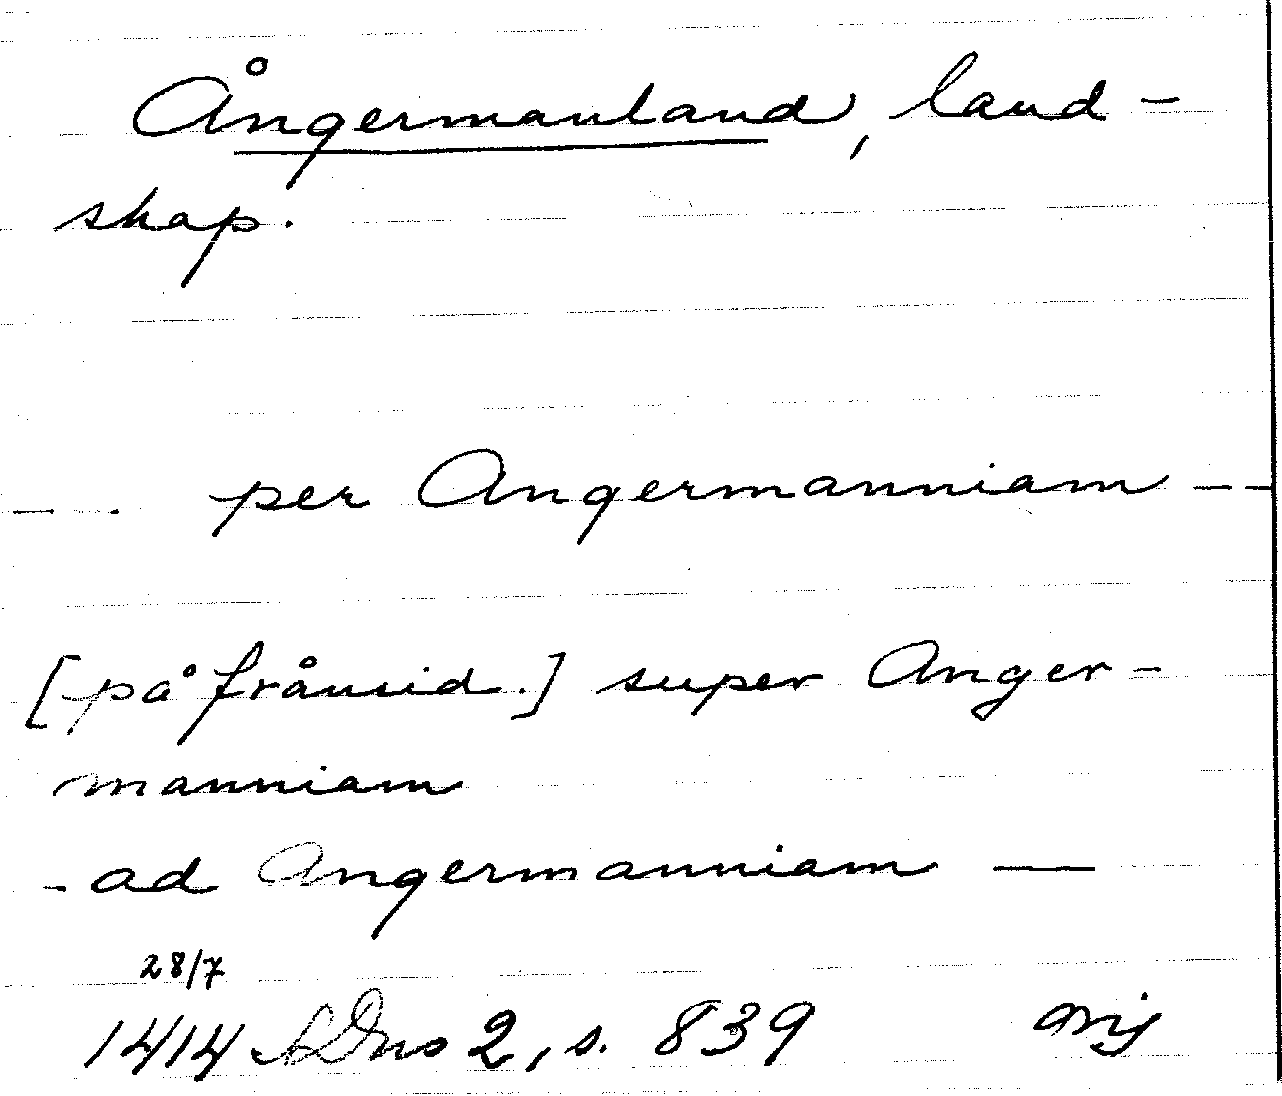 Ångermanland, land-
skap.
- . per Angermanniam - -
[på frånsid.] super Anger-
manniam
- ad Angermanniam —
28/7
1414 SDns 2, s. 839 orij